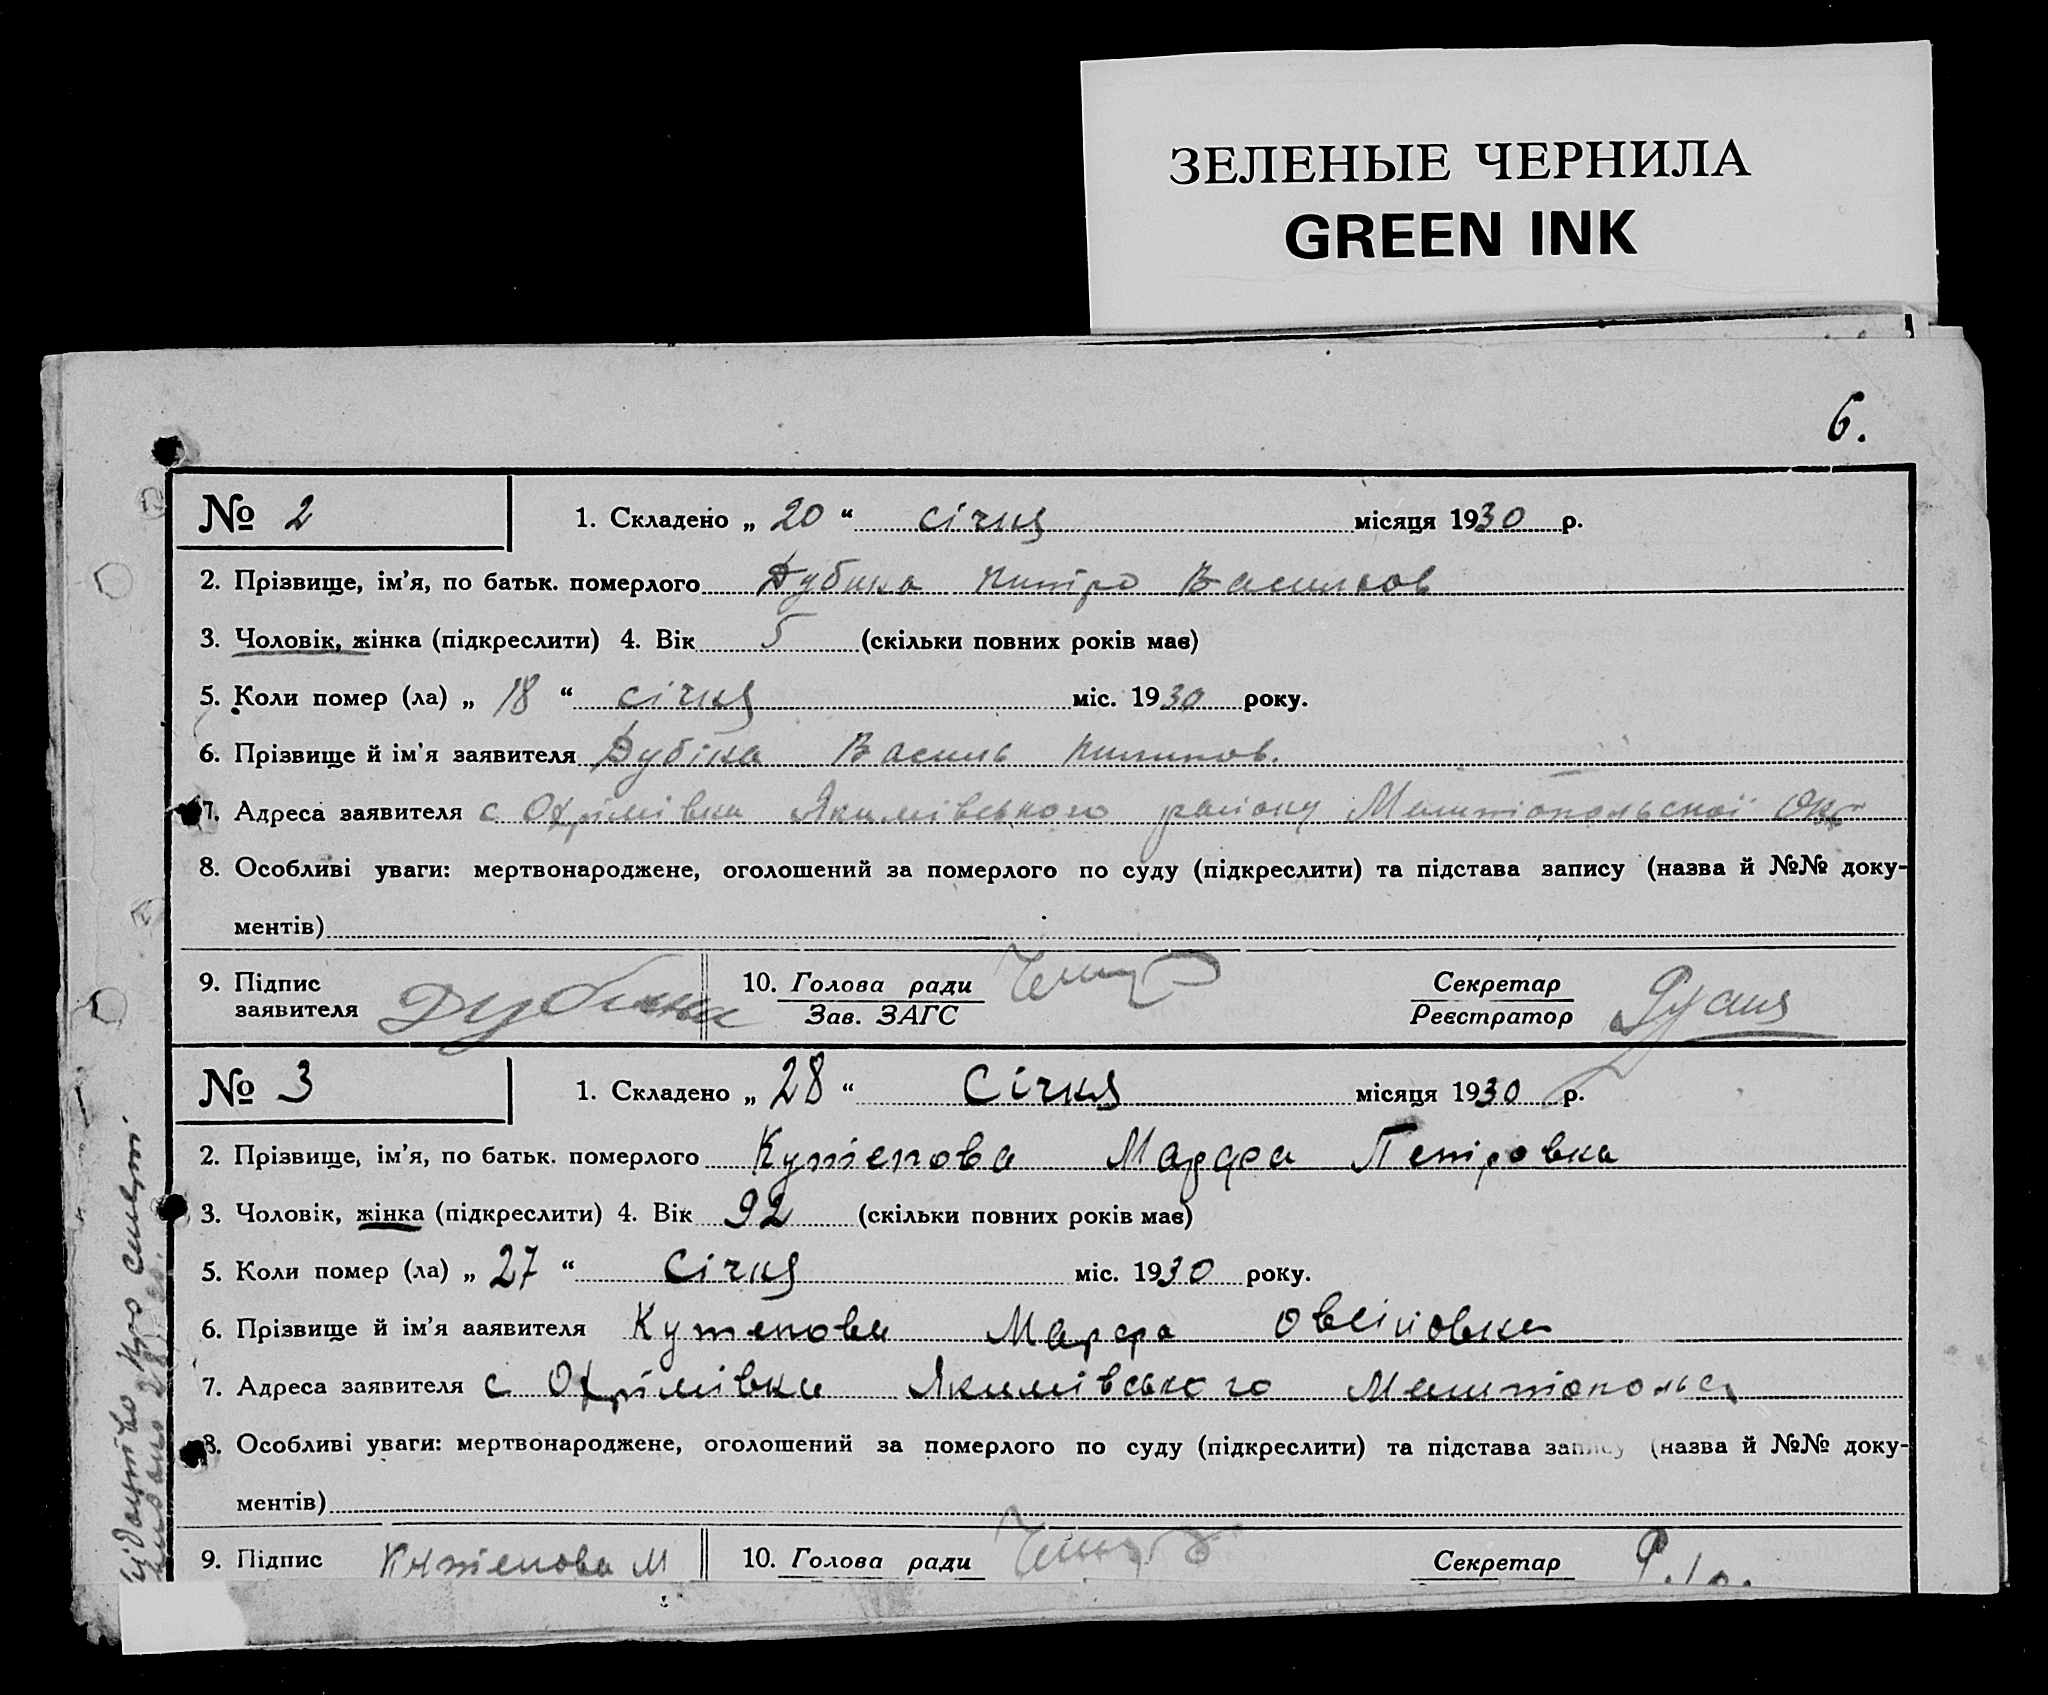 ЗЕЛЕНЫЕ ЧЕРНИЛА
GREEN INK
6.
№ 2
1. Складено „ 20 “ січня місяця 1930 р.
2. Прізвище, ім’я, по батьк. померлого Дубина Питро Васильов
3. Чоловік, жінка (підкреслити) 4. Вік 5 (скільки повних років має)
5. Коли помер (ла) „ 18 “ січня міс. 1930 року.
6. Прізвище й ім’я заявителя Дубіна Василь Пилипов.
7. Адреса заявителя с Охрімівка Якимівського району Мелитопольскої Окр
8. Особливі уваги: мертвонароджене, оголошений за померлого по суду (підкреслити) та підстава запису (назва й №№ доку-
ментів)
9. Підпис заявителя Дубина 10. Голова ради Зав. ЗАГС Секретар Реєстратор
№ 3
1. Складено „ 28 “ Січня місяця 1930 р.
2. Прізвище, ім’я, по батьк. померлого Кутепова Марфа Петровна
3. Чоловік, жінка (підкреслити) 4. Вік 92 (скільки повних років має)
5. Коли помер (ла) „ 27 “ Січня міс. 1930 року.
6. Прізвище й ім’я ааявителя Кутепова Марфа Овсіївна
7. Адреса заявителя с Охрімівка Якимівського Мелитопольс
8. Особливі уваги: мертвонароджене, оголошений за померлого по суду (підкреслити) та підстава запису (назва й №№ доку-
ментів)
9. Підпис Кутепова М 10. Голова ради Секретар
про смерті